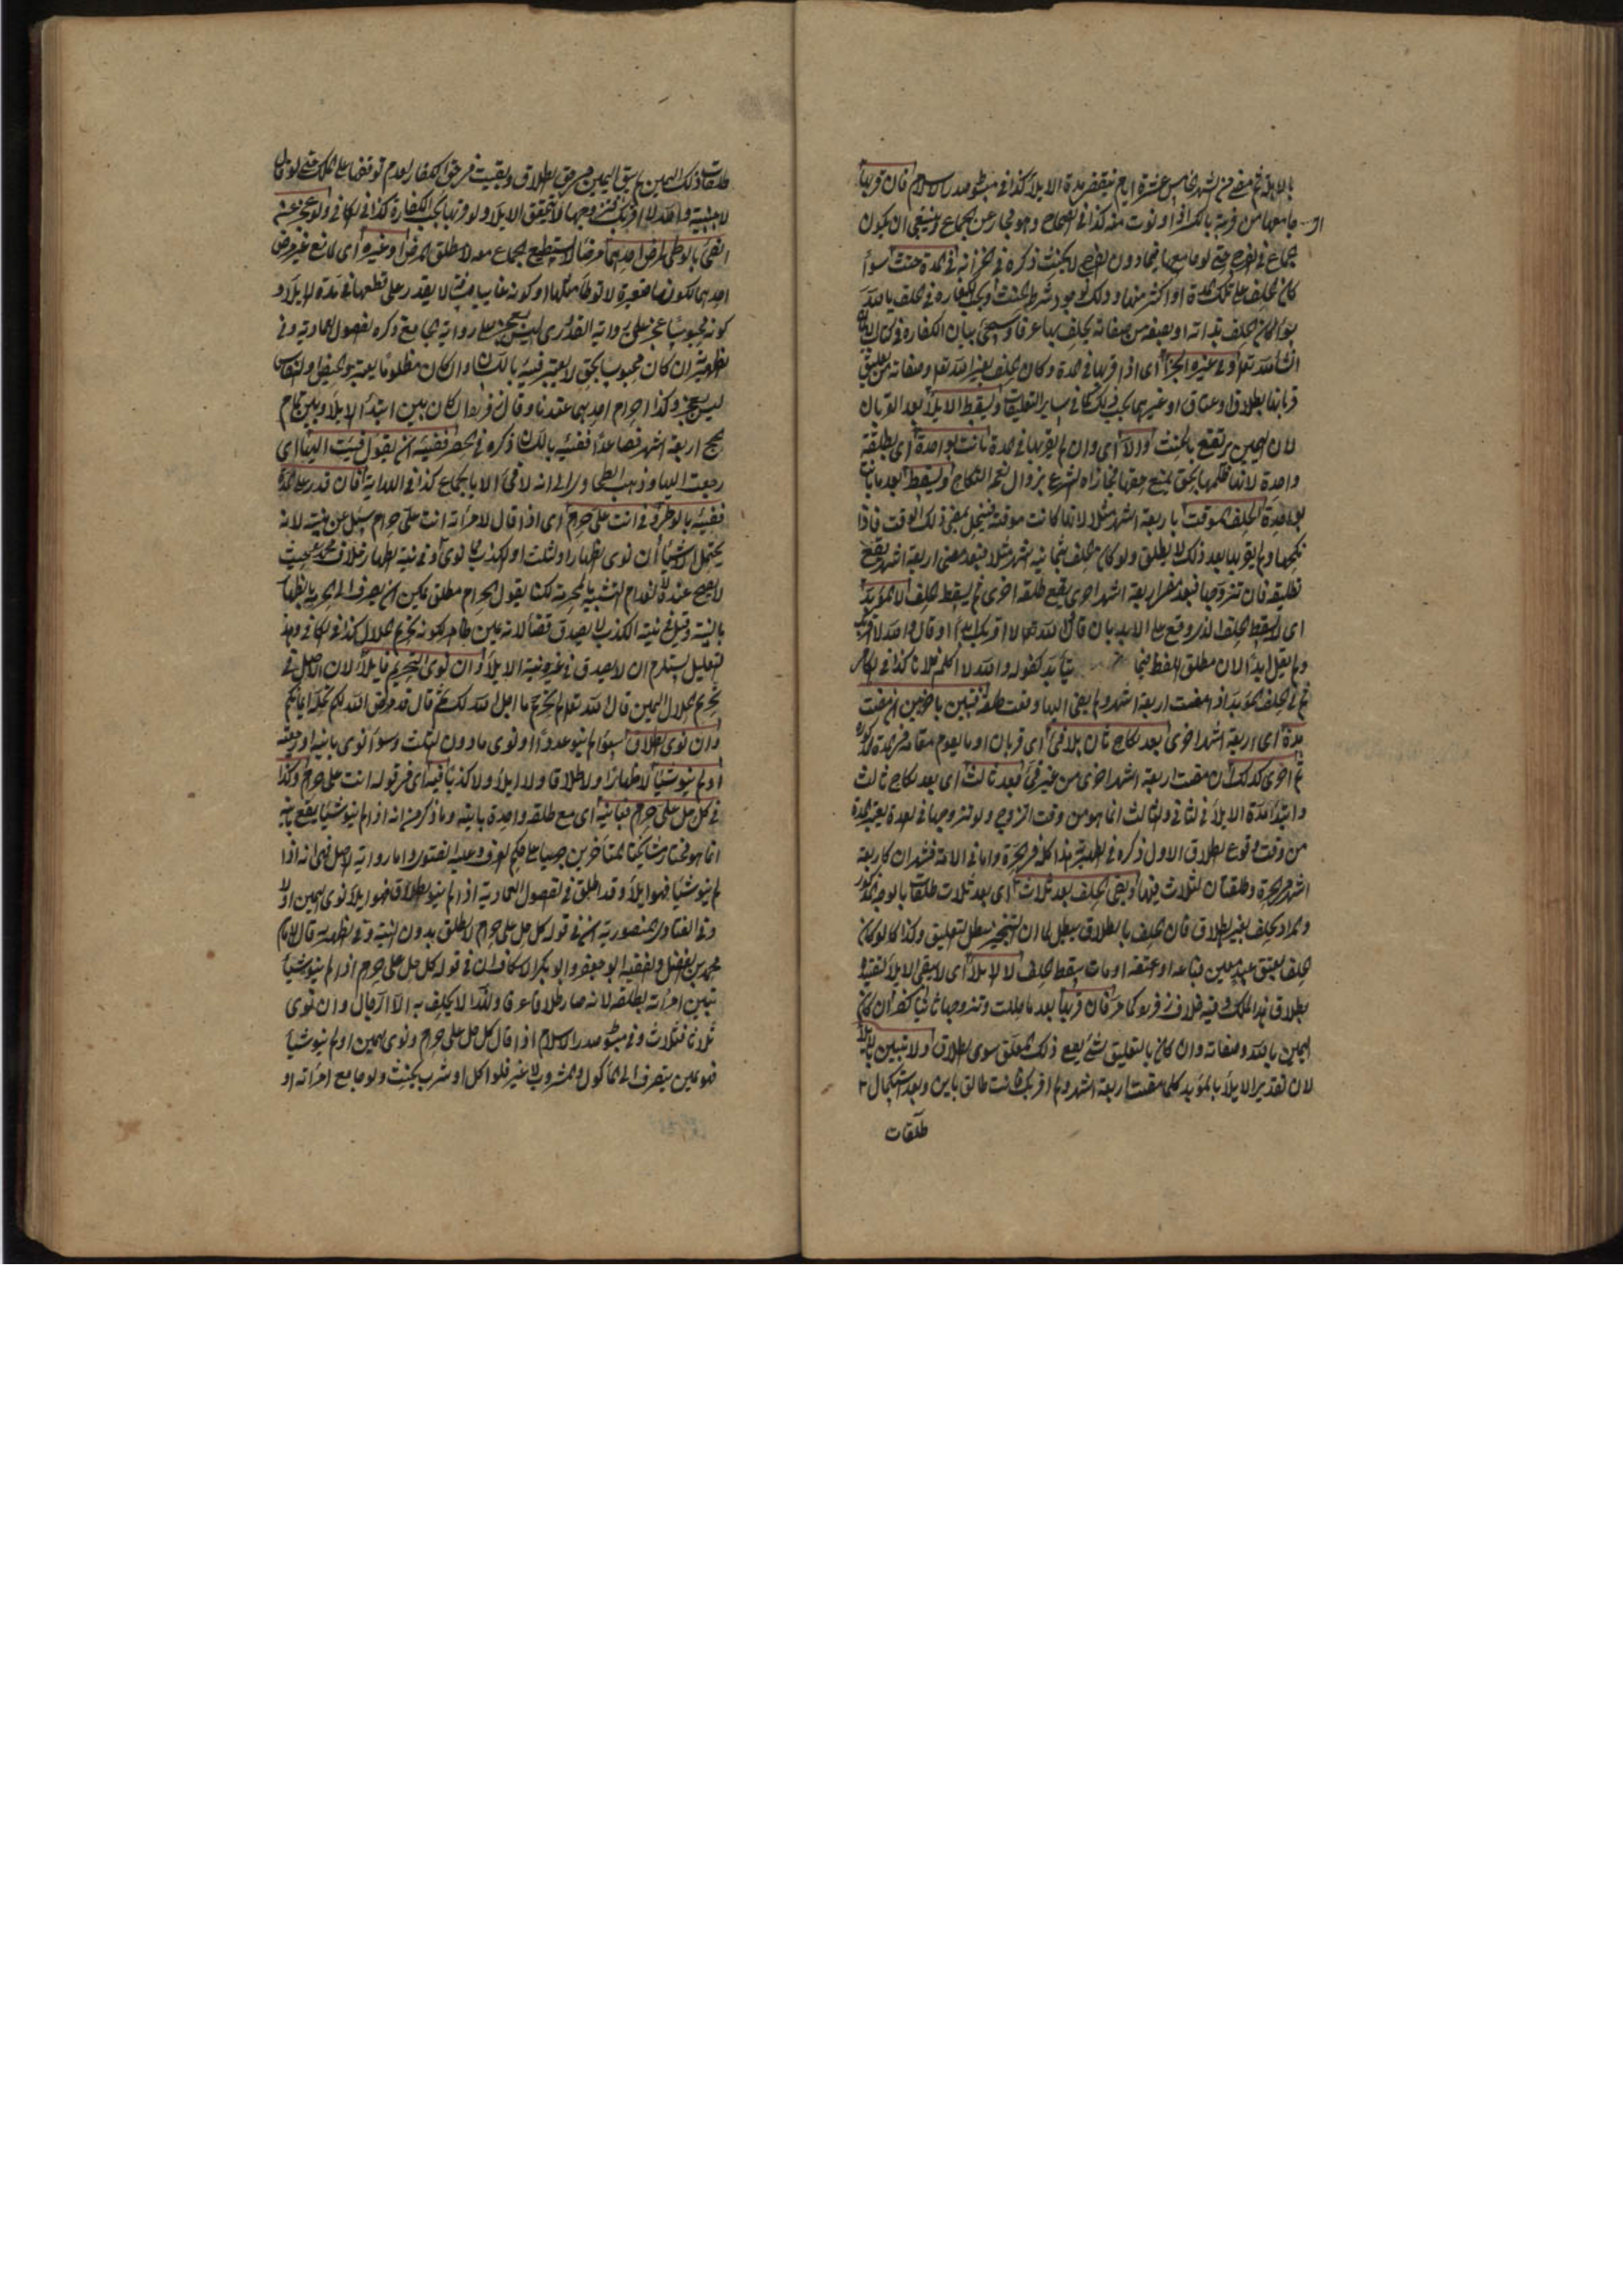 بالاهلة ثم مضى من الشهر الخامس عشرة ايام ينقضى مدة الايلاء كذا فى مبسوط صدر الاسلام فان قربها
اى جامعها من قربه بالكسر اذا دنوت منه كذا فى الصحاح وهو مجاز عن الجماع وينبغى ان يكون
الجماع فى الفرج حتى لو جامعها فيما دون الفرج لا يحنث ذكره فى الخزانه فى المدة حنث سواء
كان الحلف على تلك المدة او اكثر منها وذلك لوجود شرط الحنث ويجب الكفاره فى الحلف بالله
سواء كان الحلف بذاته او بصفه من صفاته يحلف بها عرفا وسيجئ بيان الكفارة فى كتاب الايمان
ان شاء الله تعا وفى غيره الجزاء اى اذا قربها فى المدة وكان الحلف بغير الله تعا وصفاته من تعليق
قربانها بطلاق او عتاق او غيرهما يجب ذلك كما فى ساير التعليقات ويسقط الايلاء بعد القربان
لان اليمين يرتفع بالحنث والا اى وان لم يقربها فى المدة بانت بواحدة اى بطلقة
واحدة لانه ظلمها بحق بمنع حقها فجازاه الشرع بزوال نعم النكاح ويسقط بعد ما بانت
بواحدة الحلف الموقت باربعة اشهر مثلا لانها كانت موقتة فينحل بمضى ذلك الوقت فاذا
نكحها ولم يقربها بعد ذلك لا يطلق ولو كان حلف بثمانيه اشهر مثلا فبعد مضى اربعة اشهر يقع
تطليقه فان تزوجها فبعد مضى اربعة اشهر اخرى يقع طلقه اخرى ثم يسقط الحلف لا المؤبد
اى لا يسقط الحلف الذى وقع على الابد بان قال والله تعا لا اقربك ابدا او قال والله لا اقربك
ولم يقل ابدا لان مطلق اللفظ يتأبد كقوله والله لا اكلم فلانا كذا فى الكافى
ثم فى الحلف المؤبد اذا مضت اربعة اشهر ولم يفئ اليها وقعت طلقة فتبين باخرى ان مضت
مدة اى اربعة اشهر اخرى بعد نكاح ثان بلا فئ اى قربان او ما يقوم مقامه فى المدة
ثم اخرى كذلك ان مضت اربعة اشهر اخرى من غير فئ بعد ثالث اى بعد نكاح ثالث
وابتداء مدة الايلاء فى الثانى والثالث انما هو من وقت التزوج ولو تزوجها فى العدة يعتبر المدة
من وقت وقوع الطلاق الاول ذكره فى هذا كله فى الحرة واما فى الامة فشهران كاربعة
اشهر فى الحرة وطلقتان كثلاث فيها وبقى الحلف بعد ثلاث اى بعد ثلاث طلقات بالوجه المذكور
والمراد الحلف بغير الطلاق فان الحلف بالطلاق يبطل لما ان التنجيز يبطل التعليق وكذا لو كان
حلف بعتق عبد معين فباعه او عتقه او مات يسقط الحلف لا الايلاء اى لا يبقى الايلاء لتقيده
بطلاق هذا الملك وفيه خلاف زفر كما مر فان قربها بعد ما حللت وتزوجها ثانيا كفر ان كان
اليمين بالله وصفاته وان كان بالتعليق بشئ يقع ذلك المعلق سوى الطلاق ولا تبين بالايلاء
لان تقدير الايلاء بالمؤبد كلما مضت اربعة اشهر ولم اقربك فانت طالق باين وبعد استكمال ٣
طلقات
طلقات ذلك اليمين لم يبق اليمين فى حق الطلاق وبقيت فى حق الكفارة لعدم توقفها على الملك حتى لو قال
لاجنبية والله لا اقربك فتزوجها لا يتحقق الايلاء ولو قربها يجب الكفارة كذا فى الكافى ولو عجز عن
الفئ بالوطى لمرض احدهما مرضا لا يستطيع الجماع معه لا مطلق المرض او غيره اى لمانع غير مرض
احدهما لكونها صغيرة لا توطأ مثلها او كونه غايبا مسافة لا يقدر على قطعها فى مدة الايلاء او
كونه محبوسا عجز على رواية القدورى ليس بعجز على رواية الجامع ذكره الفصول العمادية وفى
الظهيرية ان كان محبوسا بحق لا يعتبر فيئه باللسان وان كان مظلوما يعتبر والحيض والنفاس
ليس بعجز وكذا احرام احدهما عندنا وقال زفر ان كان بين ابتداء الايلاء وبين تمام
الحج اربعة اشهر فصاعدا ففيئه باللسان ذكره فى الحصر ففيئه ان يقول فئت اليها اى
رجعت اليها وذهب الطحاوى الى انه لا فئ الا بالجماع كذا فى الهداية فان قدر على المدة
ففيئه بالوطى وفى انت على حرام اى اذا قال لامرأته انت على حرام سئل عن نيته لانه
يحتمل الاشياء ان نوى الظهار او الثلث او الكذب فما نوى وفى نية الظهار خلاف محمد حيث
لا يصح عنده لانعدام التشبيه بالمحرمة لكنا نقول الحرام مطلق يمكن ان يصرف الى الحرمة بالظهار
بالنية وقيل فى نية الكذب لا يصدق قضاء لانه يمين ظاهر لكونه تحريم الحلال كذا فى الكافى وهذا
التعليل يستلزم ان لا يصدق فى غيره نية الايلاء وان نوى التحريم فايلاء لان الاصل فى
تحريم الحلال اليمين قال الله تعا لم تحرم ما احل الله لك ثم قال قد فرض الله لكم تحلة ايمانكم
وان نوى الطلاق سواء لم ينو عددا او نوى ما دون الثلث وسواء نوى باينه او رجعيته
او لم ينو شيئا لا ظهارا ولا طلاقا ولا ايلاء ولا كذبا فيه اى فى قوله انت على حرام وكذا
فى كل حل على حرام فباينه اى مع طلقه واحدة باينه وما ذكر من انه اذا لم ينو شيئا يقع باينه
انما هو مختار مشايخنا المتأخرين جريا على حكم العرف وعليه الفتوى واما رواية الاصل فهى انه اذا
لم ينو شيئا فهو ايلاء وقد اطلق فى الفصول العمادية اذا لم ينو الطلاق فهو ايلاء نوى اليمين او لا
وفى الفتاوى المنصورية ان فى قوله كل حل على حرام لا يطلق بدون النية وفى الظهيرية قال الامام
محمد بن الفضل والفقيه ابو جعفر وابو بكر الاسكاف ان فى قوله كل حل على حرام اذا لم ينو شيئا
تبين امرأته بطلقه لانه صار طلاقا عرفا ولهذا لا يحلف به الا الرجال وان نوى
ثلاثا فثلاث وفى مبسوط صدر الاسلام اذا قال كل حل على حرام ونوى اليمين او لم ينو شيئا
فهو يمين ينصرف الى المأكول والمشروب لا غير فلو اكل او شرب يحنث ولو جامع امرأته او